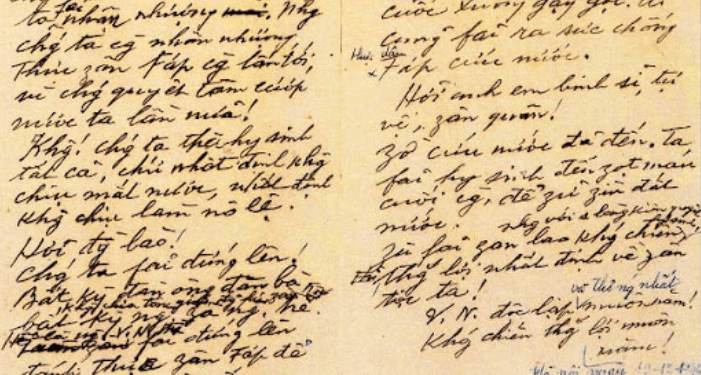 nhân nhượng. Nhg
chg ta cg nhân nhượng
thực zân Fáp cg lấn tới,
vì chg quyết tâm cướp
nước ta lần nữa!
Khg! chg ta thà hy sinh
tất cả, chứ nhất định khg
chịu mất nước, nhất định
khg chịu làm nô lệ.
Hỡi đg bào!
Chg ta fải đứng lên!
Bất kỳ đàn ông đàn bà
bất kỳ ng zà ng trẻ.
fải đứng lên
đánh thực zân Fáp để
cuốc xuổng gậy gộc. Ai
cũng fải ra sức chống
Fáp cứu nước.
Hỡi anh em binh sĩ, tự
vệ, zân quân!
zờ cứu nước đã đến. Ta
fải hy sinh đến zọt máu
cuối cg, để zữ zìn đất
nước.
zù fải zan lao khg chiến
thg lợi nhất định về zân
tộc ta!
và thống nhất
V. N. độc lập muôn năm!
Khg chiến thg lợi muôn
năm!